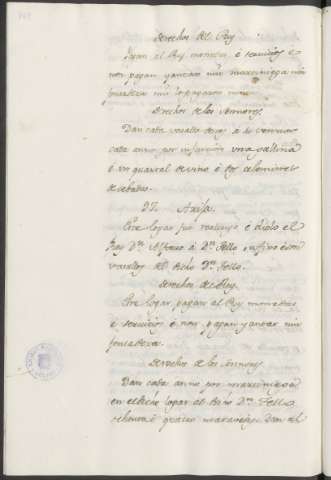 derechos del Rey
Pagan al Rey monedas è servicios è
non pagan yantar nin martiniega nin
fonsadera nin lo pagaron nunca
Derechos de los Sennores
Dan cada vasallo de
cada anno por infurcion una gallina
è un quarral de vino è tres celemines
de cebada.
Este logar fue realengo è diolo el
Rey Dn. Alfonso à Dn. Tello su fijo è son
vasallos del dicho Dn. Tello.
derechos del Rey.
Este logar pagan al Rey monedas
è servicios è non pagan yantar nin
fonsadera.
Derechos de los Sennores
Dan cada anno por martiniega
en el dicho logar al dicho Dn. Tello
è quatro maravedis. Dan al